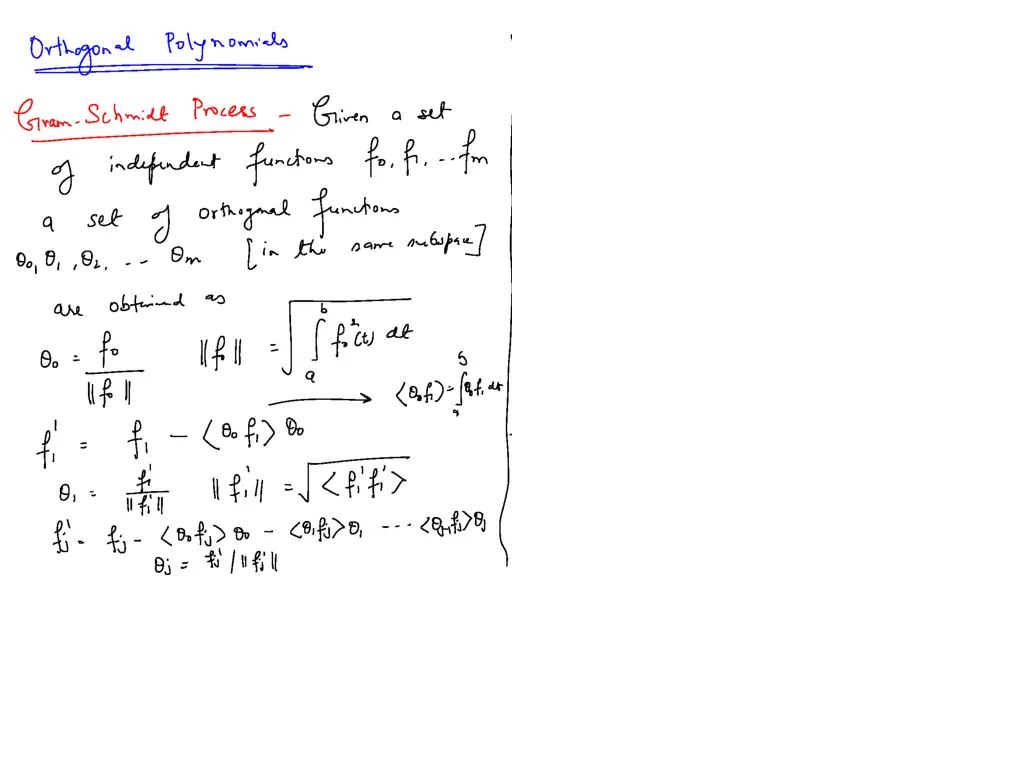 Orthogonal Polynomials
Gram-Schmidt Process - Given a set
of independent functions f₀, f₁, ... fₘ
a set of orthogonal functions
θ₀, θ₁, θ₂, ... θₘ [in the same subspace]
are obtained as
θ₀ = f₀ / ||f₀|| ||f₀|| = √(∫ₐᵇ f₀²(t) dt)
⟶ ⟨θ₀f₁⟩ = ∫ₐᵇ θ₀f₁ dt
f₁' = f₁ - ⟨θ₀ f₁⟩ θ₀
θ₁ = f₁' / ||f₁'|| ||f₁'|| = √⟨f₁' f₁'⟩
fⱼ' = fⱼ - ⟨θ₀fⱼ⟩ θ₀ - ⟨θ₁fⱼ⟩ θ₁ ... ⟨θⱼ₋₁fⱼ⟩ θⱼ
θⱼ = fⱼ' / ||fⱼ'||